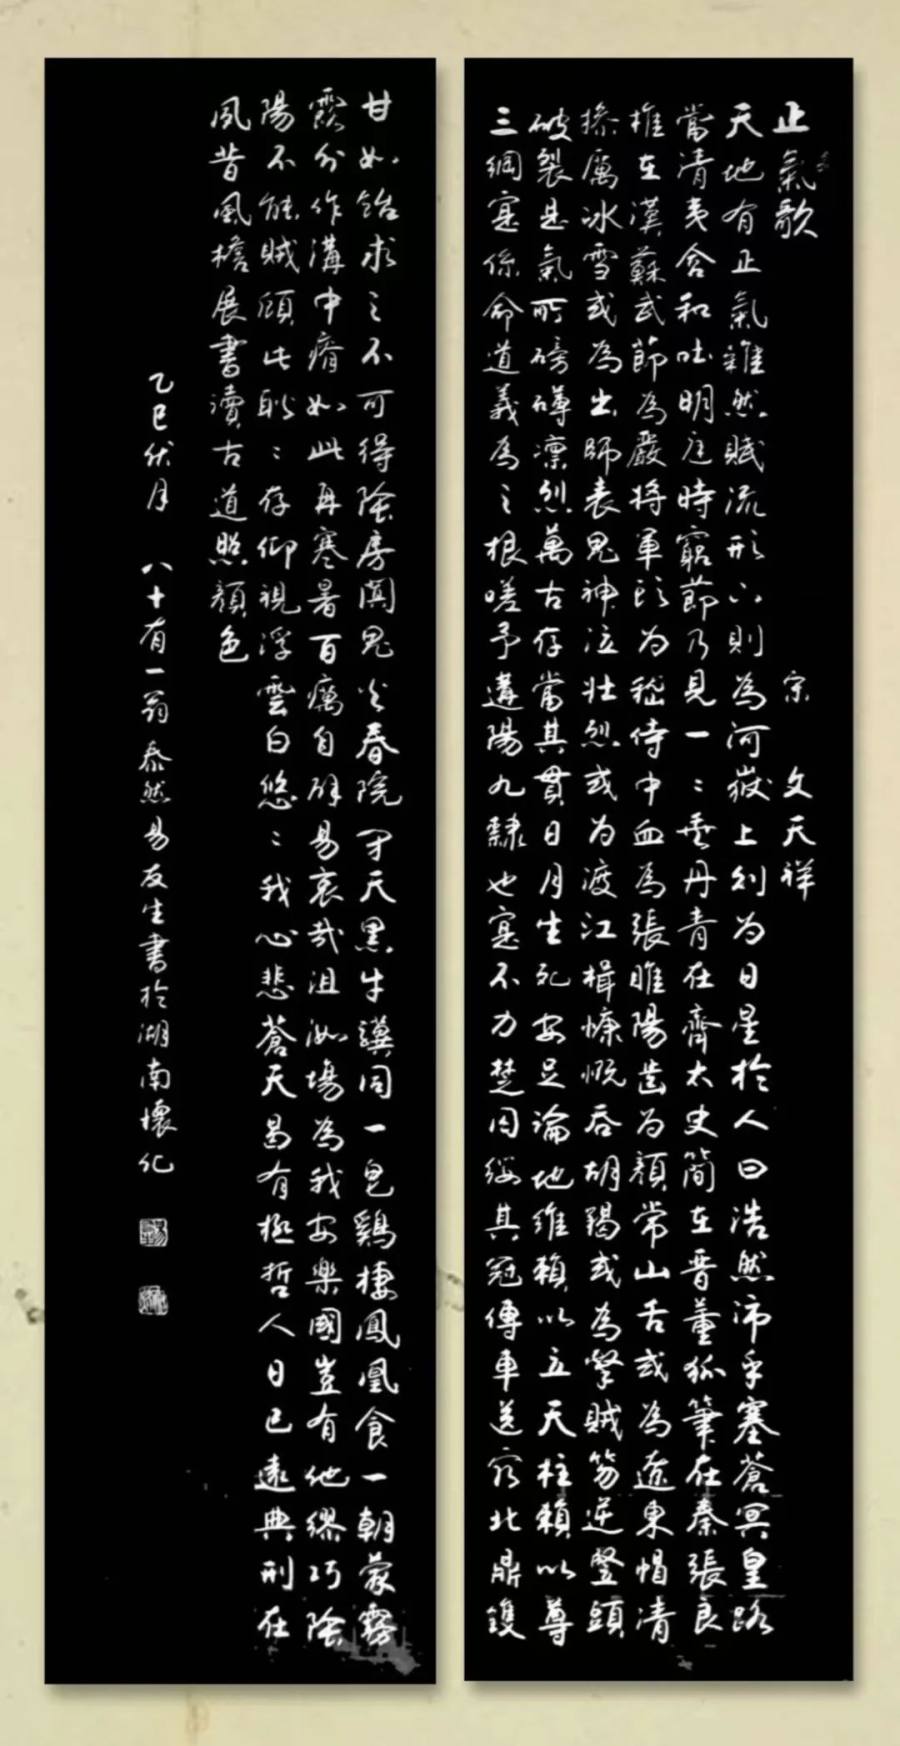 正氣歌 宋 文天祥
天地有正氣雜然賦流形下則為河嶽上則為日星於人曰浩然沛乎塞蒼冥皇路
當清夷含和吐明庭時窮節乃見一〻垂丹青在齊太史簡在晉董狐筆在秦張良
椎在漢蘇武節為嚴將軍頭為嵇侍中血為張睢陽齒為顏常山舌或為遼東帽清
操厲冰雪或為出師表鬼神泣壯烈或為渡江楫慷慨吞胡羯或為擊賊笏逆豎頭
破裂是氣所磅礴凛烈萬古存當其貫日月生死安足論地維賴以立天柱賴以尊
三綱寔係命道義為之根嗟予遘陽九隸也寔不力楚囚纓其冠傳車送窮北鼎鑊
甘如飴求之不可得陰房闃鬼火春院閉天黑牛驥同一皂鷄棲鳳凰食一朝蒙霧
露分作溝中瘠如此再寒暑百癘自辟易哀哉沮洳場為我安樂國豈有他繆巧陰
陽不能賊顧此耿〻存仰視浮雲白悠〻我心悲蒼天曷有極哲人日已遠典刑在
夙昔風檐展書讀古道照顏色
乙巳伏月 八十有一翁泰然易友生書於湖南懷化